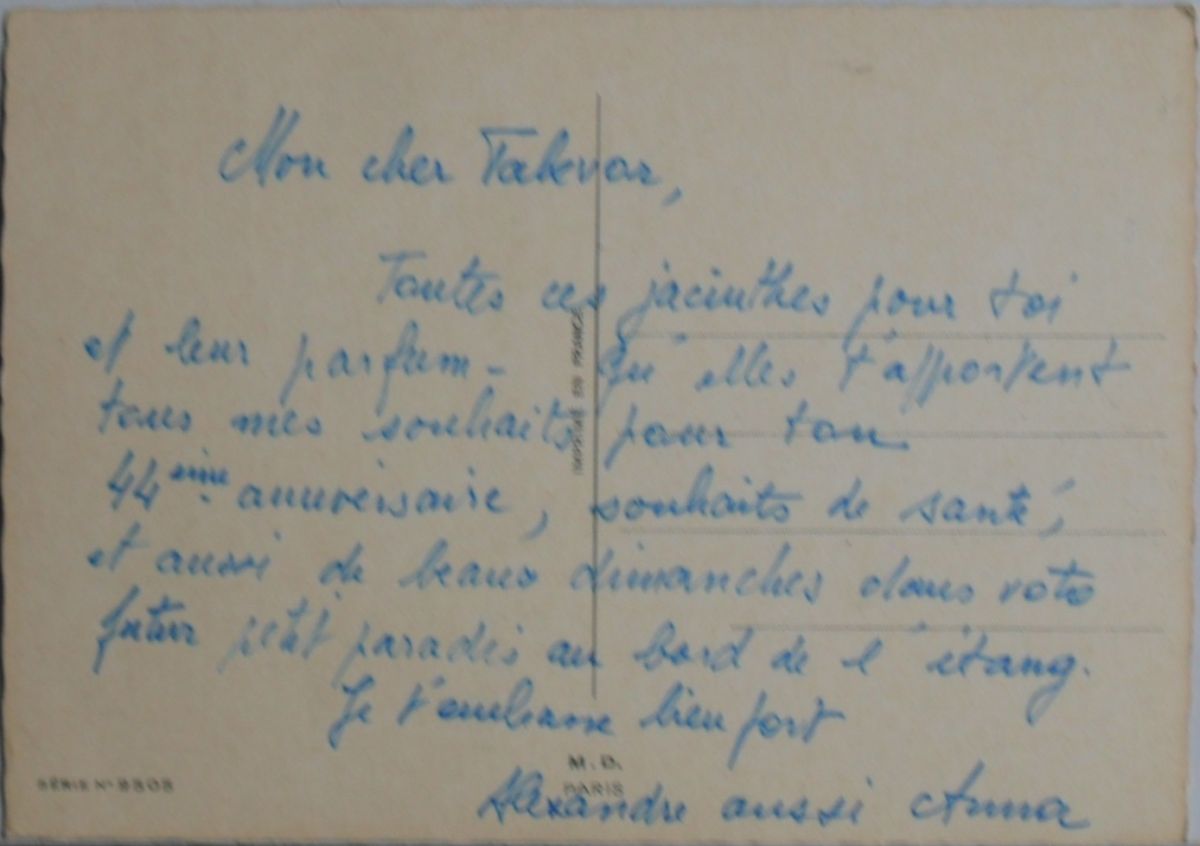 Mon cher Talevar,
Toutes ces jacinthes pour toi
et leur parfum - Qu'elles t'apportent
tous mes souhaits pour ton
44ème anniversaire, souhaits de santé,
et aussi de beaux dimanches dans votre
futur petit paradis au bord de l'étang.
Je t'embrasse bien fort
Alexandre aussi Anna
IMPRIMÉ EN FRANCE
M. D.
PARIS
SÉRIE N°